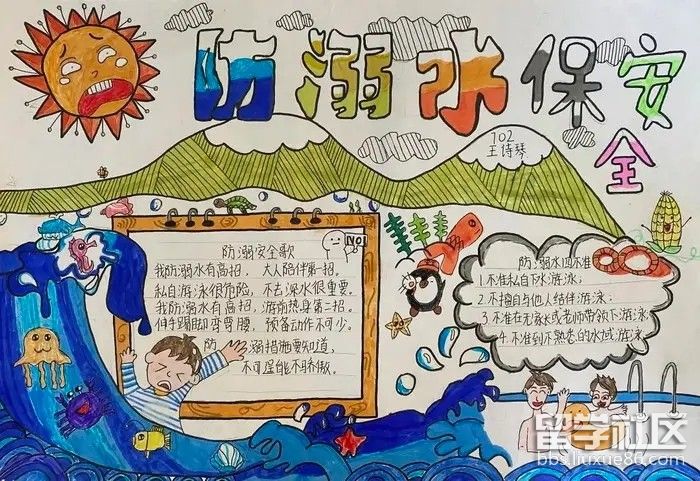 防溺水保安全
102
王诗琴
防溺安全歌
NO!
我防溺水有高招，大人陪伴第一招。
私自游泳很危险，不去深水很重要。
我防溺水有高招，游前热身第二招。
伸手踢脚弯弯腰，预备动作不可少。
防溺措施要知道，
不可逞能不骄傲。
防溺水四不准
1.不准私自下水游泳；
2.不擅自与他人结伴游泳；
3.不准在无家长或老师带领下游泳；
4.不准到不熟悉的水域游泳
留学社区
bbs.liuxue86.com